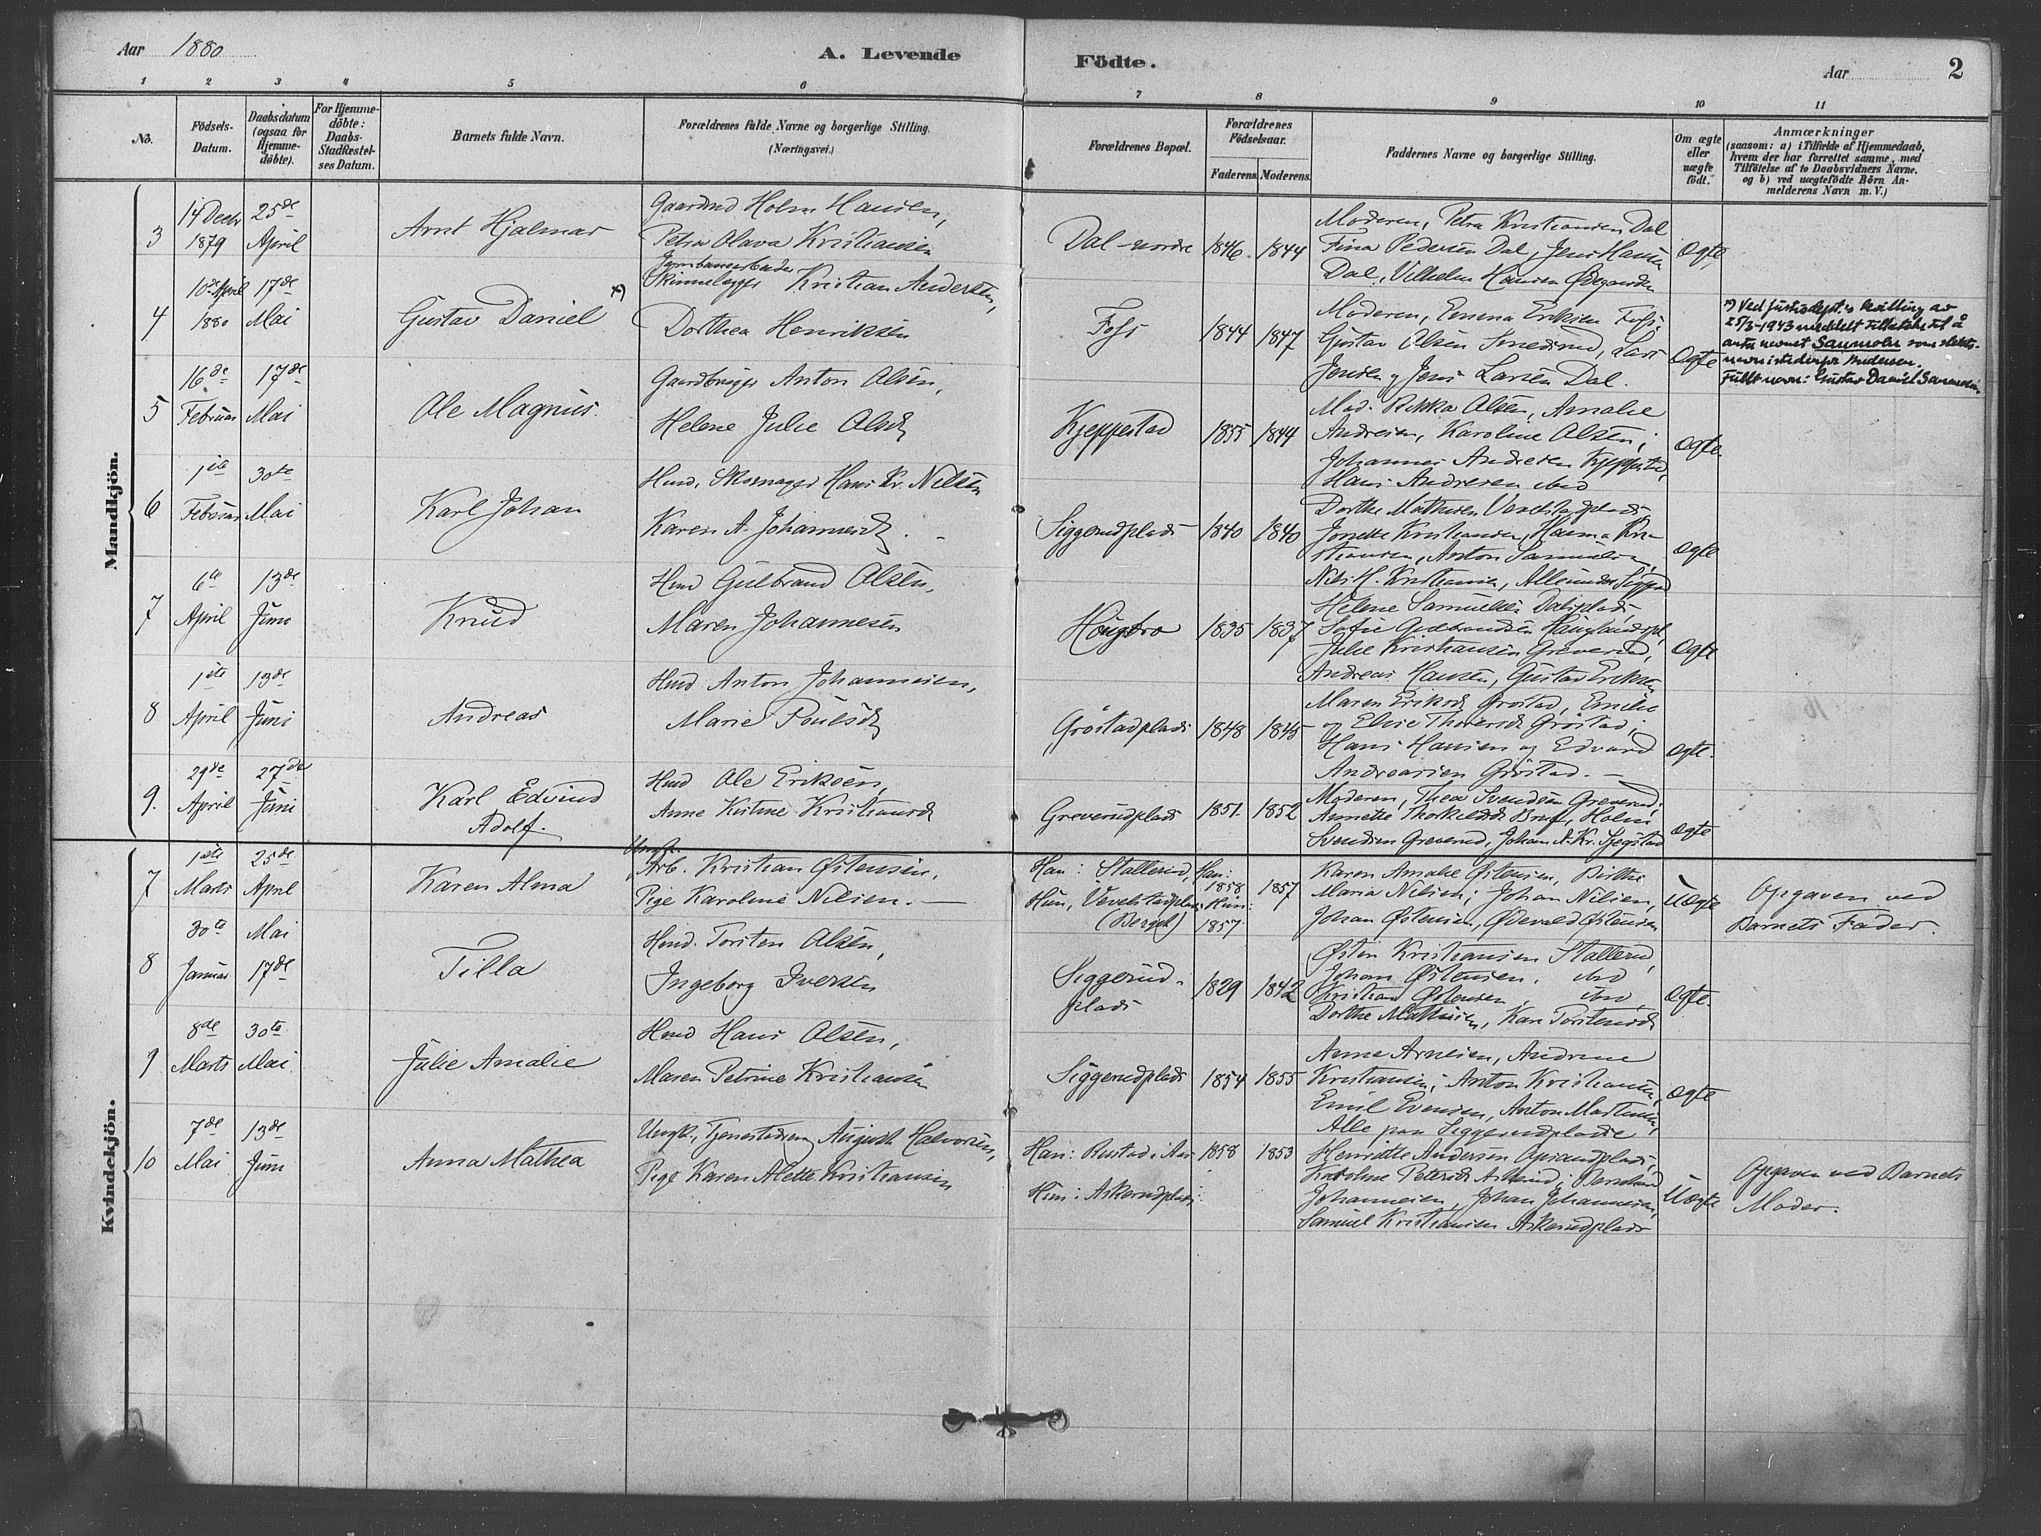 Aar 1880
A. Levende Födte.
Aar
2
1 2 3 4 5 6 7 8 9 10 11
No.
Födsels-
Datum.
Daabsdatum
(ogsaa for
Hjemme-
döbte).
For Hjemme-
döbte:
Daabs-
Stadfæstel-
ses Datum.
Barnets fulde Navn.
Forældrenes fulde Navne og borgerlige Stilling.
(Næringsvei.)
Forældrenes Bopæl.
Forældrenes
Födselsaar.
Faderens Moderens.
Faddernes Navne og borgerlige Stilling.
Om ægte
eller
uægte
födt.
Anmærkninger
(saasom: a) i Tilfælde af Hjemmedaab,
hvem der har forrettet samme, med
Tilföielse af to Daabsvidners Navne.
og b) ved uægtefödte Börn An-
melderens Navn m. V.)
Mandkjön.
3
14 Decbr
1879
25de
April
Arnt Hjalmar
Gaardmd Holm Hansen,
Petra Olava Kristiansen
Dal nordre
1846 1844
Moderen, Petra Kristiansen Dal
Fina Pedersen Dal, Jens Hansen
Dal, Vilhelm Hansen Ødegaarden
Ægte
4
10de April
1880
17de
Mai
Gustav Daniel x)
Jernbanearbeider
Skinnelægger Kristian Andersen,
Dorthea Henriksen
Foss
1844 1847
Moderen, Emma Eriksen Foss,
Gustav Olsen Smedsrud, Lars
Jensen og Jens Larsen Dal.
Ægte
x) Ved justisdept.s bevilling av
25/3-1943 meddelt tillatelse til å
anta navnet Sanmoen som slekts-
navn istedenfor Andersen.
Fullt navn: Gustav Daniel Sanmoen.
5
16de
Februar
17de
Mai
Ole Magnus.
Gaardbruger Anton Olsen,
Helene Julie Olsd
Kjeppestad
1855 1844
Mod. Rikka Olsen, Amalie
Andresen, Karoline Olsen;
Johannes Andresen Kjeppestad,
Hans Andresen ibid
Ægte.
6
1ste
Februar
30te
Mai
Karl Johan
Husmd, Skomager Hans Kr. Nilsen
Karen A. Johannesd.
Siggerudplads
1840 1840
Dorthe Mathisen Vevelstadplads
Jonette Kristiansen, Hanna Kri-
stiansen, Anton Samuelsen,
Nils H. Kristiansen, Alle under Siggerud
Ægte
7
6te
April
13de
Juni
Knud
Husmd Gulbrand Olsen,
Maren Johannesen
Haugbro
1835 1837
Helene Samuelsen Dalsplads
Sofie Gulbrandsen Hauglandspl,
Julie Kristiansen Greverud,
Andreas Hansen, Gustav Eriksen
Ægte
8
1ste
April
13de
Juni
Andreas
Husmd Anton Johannesen,
Marie Paulsd
Gröstadplads
1848 1845
Maren Eriksd Gröstad, Emilie
og Elise Thoresd Gröstad;
Hans Hansen og Edvard
Andreassen Gröstad.
Ægte.
9.
29de
April
27de
Juni
Karl Edvind
Adolf.
Husmd Ole Eriksen,
Anne Kristine Kristiansd
Greverudplads
1851. 1852
Moderen, Thea Svendsen Greverud,
Annette Thorkildsd Bru, Holm
Svendsen Greverud, Johan A. Kr. Sjegstad
Ægte
Kvindekjön.
7
1ste
Marts
25de
April
Karen Alma
Ungk.
Arb. Kristian Østensen,
Pige Karoline Nilsen.
Han: Stallerud,
Hun, Vevelstadplads
(Berget)
Han:
1858
Hun:
1857.
1857
Karen Amalie Østensen, Birthe
Maria Nilsen; Johan Nilsen,
Johan Østensen, Ødevald Østensen
Uægte
Opgaven ved
Barnets Fader.
8
30te
Januar
Mai
17de
Tilla
Husmd. Torsten Olsen,
Ingeborg Iversen
Siggerud-
plads
1829 1842
Østen Kristiansen Stallerud,
Johan Østensen. ibid
Kristian Østensen ibid,
Dorthe Mathisen, Kari Torstensd
Ægte.
9
8de
Marts
30te
Mai.
Julie Amalie
Husmd Hans Olsen,
Maren Petrine Kristiansen
Siggerudplads
1854 1855
Anne Arnesen, Andrine
Kristiansen; Anton Kristiansen,
Emil Evensen, Anton Martinsen,
Alle paa Siggerudplads
Ægte
10
7de
Mai
13de
Juni
Anna Mathea
Ungk., Tjenestedreng August Halvorsen,
Pige Karen Alette Kristiansen
Han: Rustad i Aas
Hun: Askerudplads.
1858 1853
Henriette Andersen Opsandplads,
Karoline Petersd Askerud; Bernhard
Johannesen, Johan Johannesen,
Samuel Kristiansen Askerudplads
Uægte
Opgaven ved Barnets
Moder.